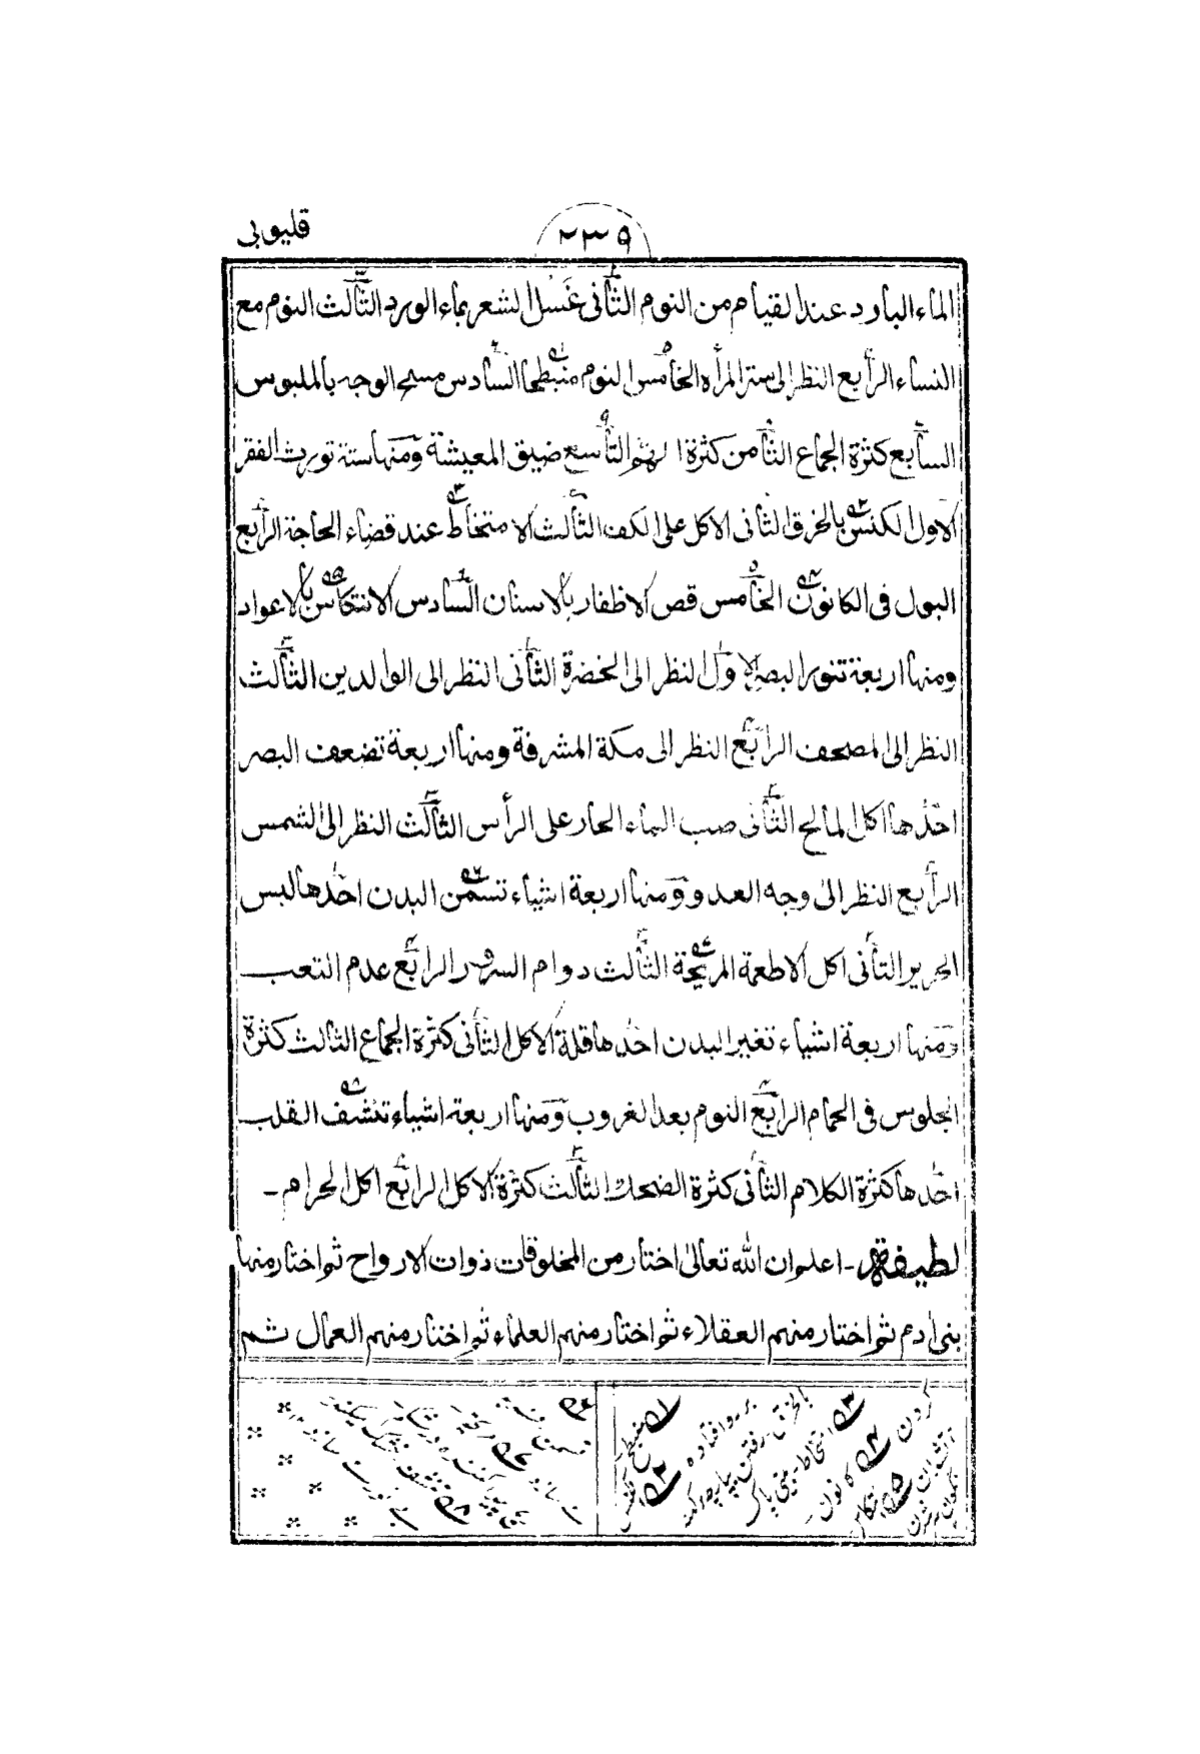 قليوبى
٢٣٩
الماء البارد عند القيام من النوم الثانى غَسل الشعر بماء الورد الثالث النوم مع
النساء الرابع النظر الى ستر المرأة الخامس النوم منبطحا السادس مسح الوجه بالملبوس
السابع كثرة الجماع الثامن كثرة الهم التاسع ضيق المعيشة ومنها ستة تورث الفقر
الاول الكنس بالخرق الثانى الاكل على الكف الثالث الامتخاط عند قضاء الحاجة الرابع
البول فى الكانون الخامس قص الاظفار بالاسنان السادس الانتكاس بالاعواد
ومنها اربعة تنور البصر الاول النظر الى الخضرة الثانى النظر الى الوالدين الثالث
النظر الى المصحف الرابع النظر الى مكة المشرفة ومنها اربعة تضعف البصر
احدها اكل المالح الثانى صب الماء الحار على الرأس الثالث النظر الى الشمس
الرابع النظر الى وجه العدو ومنها اربعة اشياء تسمن البدن احدها لبس
الحرير الثانى اكل الاطعمة المريحة الثالث دوام السرور الرابع عدم التعب
ومنها اربعة اشياء تغير البدن احدها قلة الاكل الثانى كثرة الجماع الثالث كثرة
الجلوس فى الحمام الرابع النوم بعد الغروب ومنها اربعة اشياء تنشف القلب
احدها كثرة الكلام الثانى كثرة الضحك الثالث كثرة الاكل الرابع اكل الحرام -
لطيفة - اعلم ان الله تعالى اختار من المخلوقات ذوات الارواح ثم اختار منها
بنى ادم ثم اختار منهم العقلاء ثم اختار منهم العلماء ثم اختار منهم العمال ثم